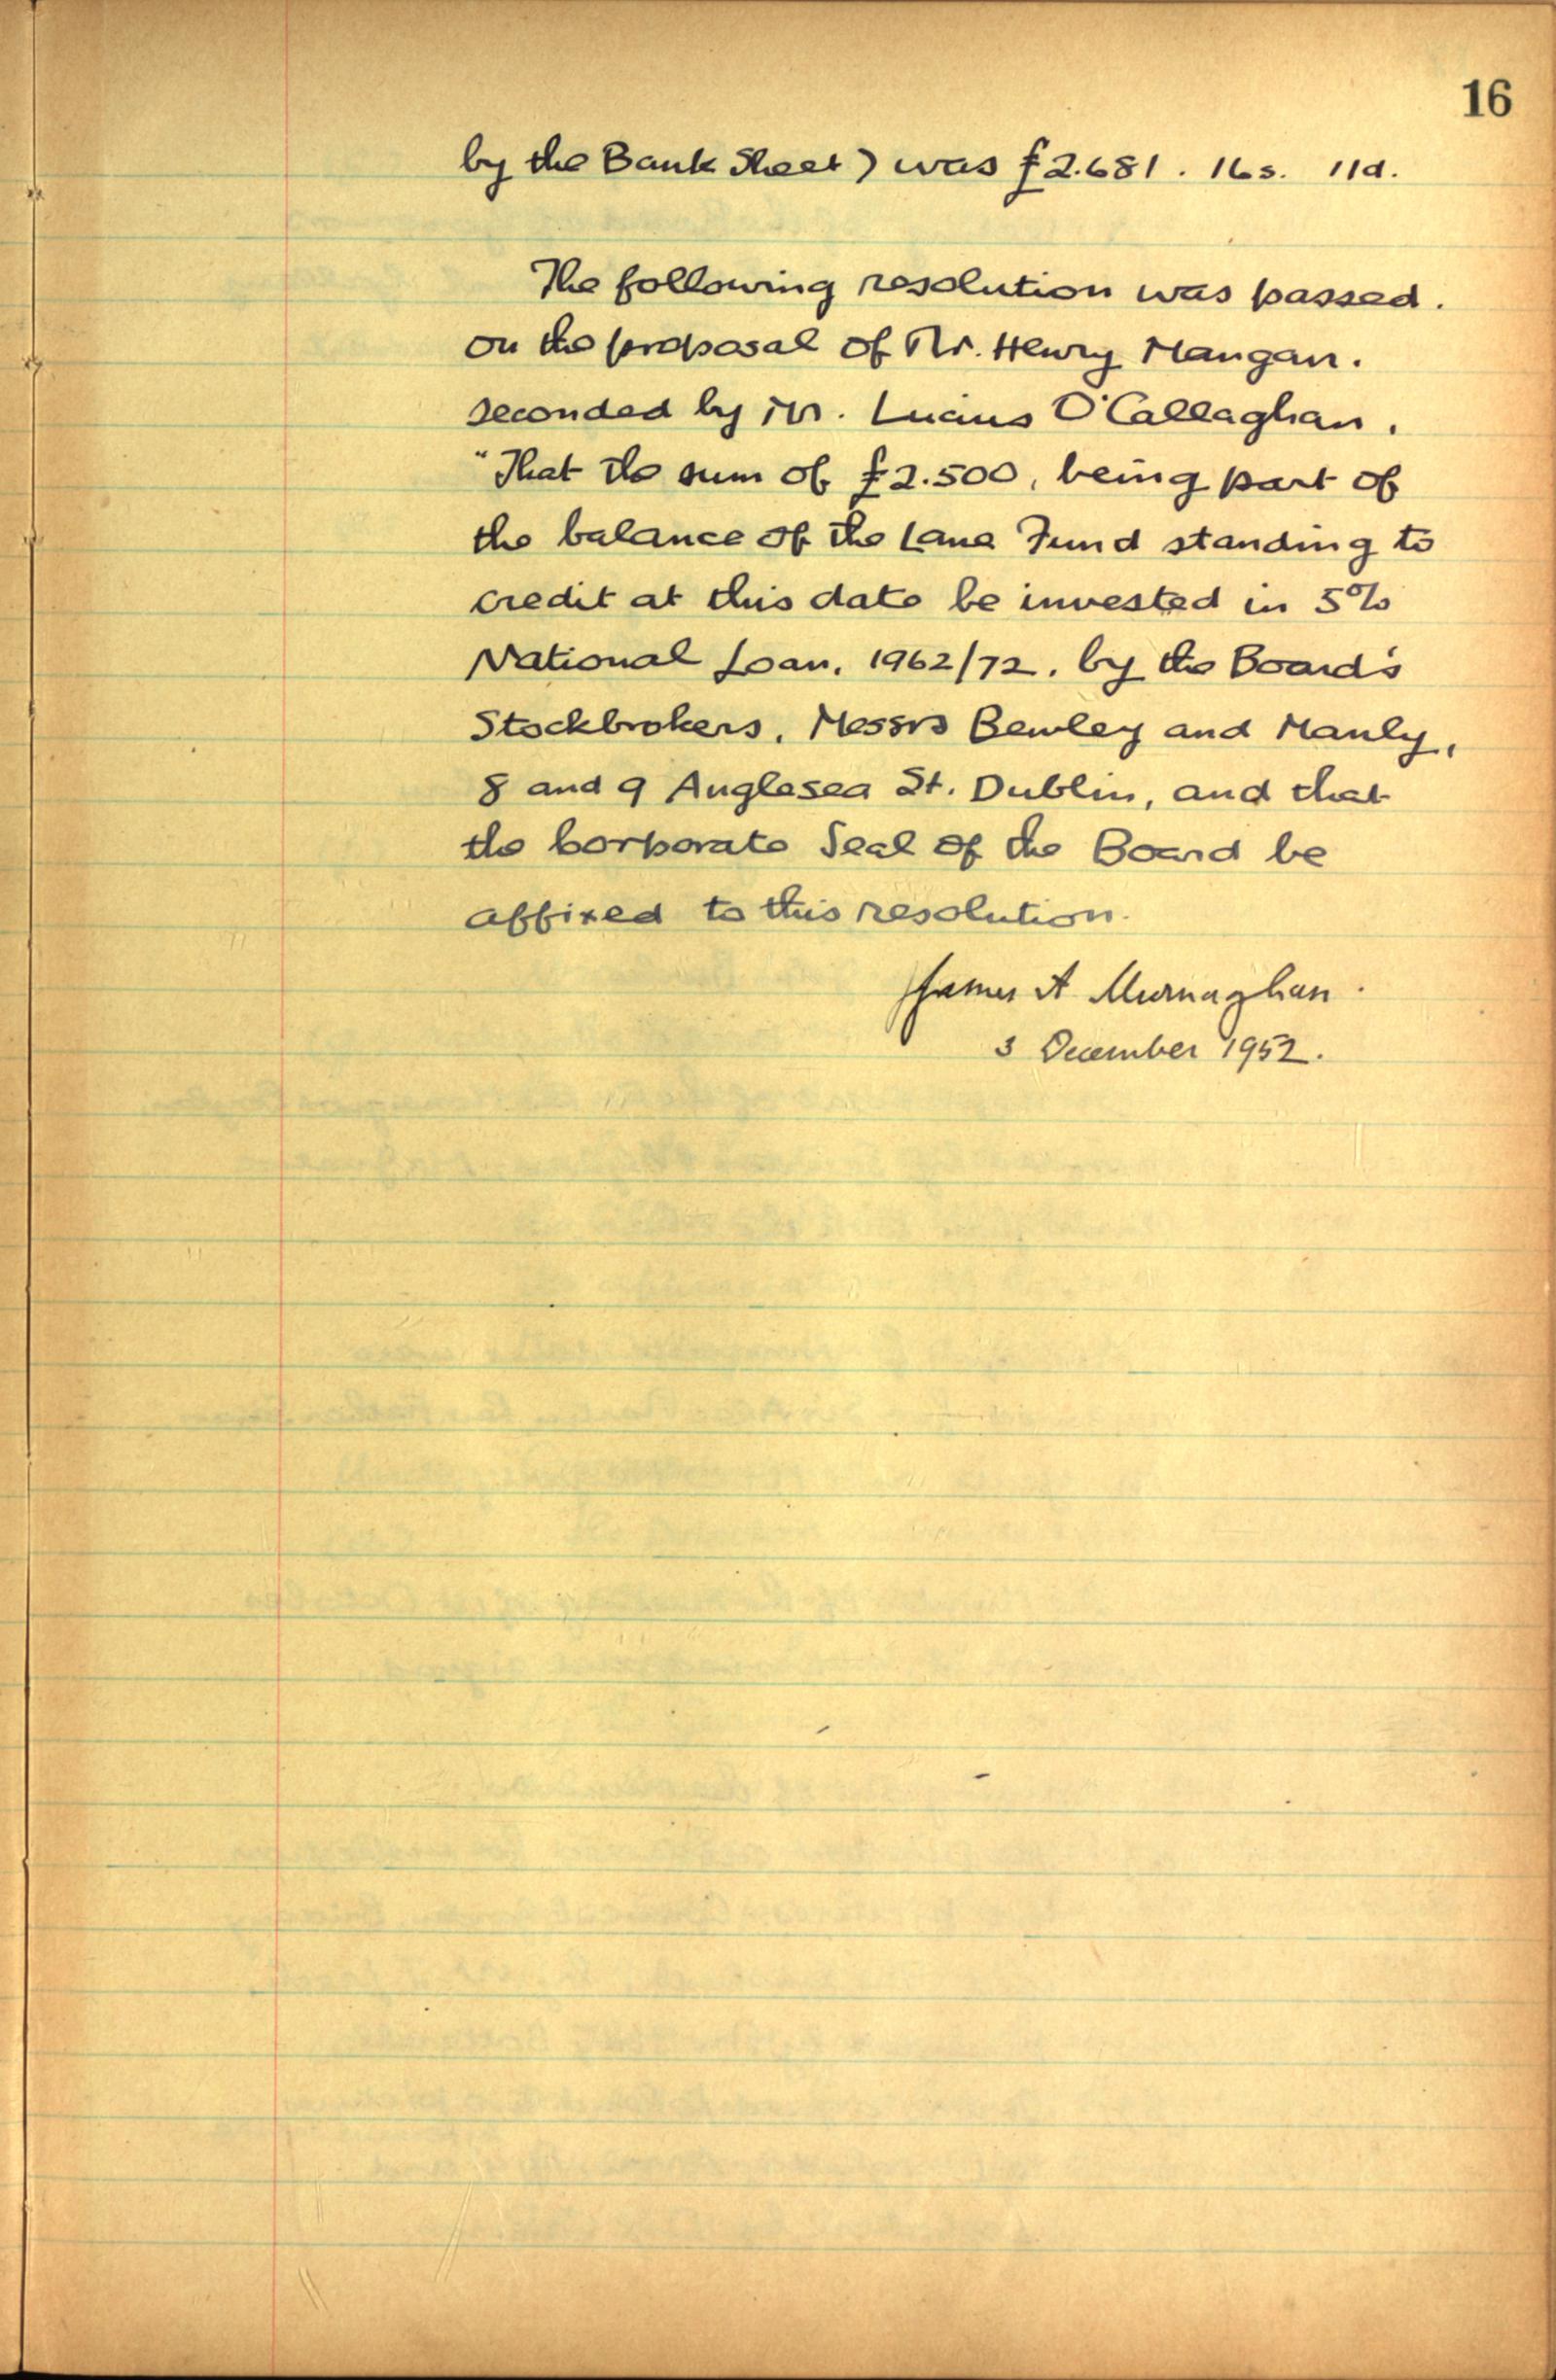 16
by the Bank Sheet) was £2.681. 16s. 11d.
The following resolution was passed.
on the proposal of Mr. Henry Mangan.
seconded by Mr. Lucius O'Callaghan.
"That the sum of £2.500, being part of
the balance of the Lane Fund standing to
credit at this date be invested in 5%
National Loan, 1962/72, by the Board's
Stockbrokers, Messrs Bewley and Manly,
8 and 9 Anglesea St. Dublin, and that
the Corporate Seal of the Board be
affixed to this resolution.
James A Murnaghan.
3 December 1952.